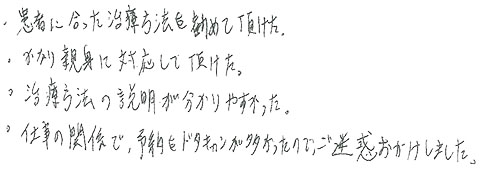 ・患者に合った治療方法を勧めて頂けた。
・かなり親身に対応して頂けた。
・治療方法の説明が分かりやすかった。
・仕事の関係で、予約をドタキャンが多かったので、ご迷惑おかけしました。